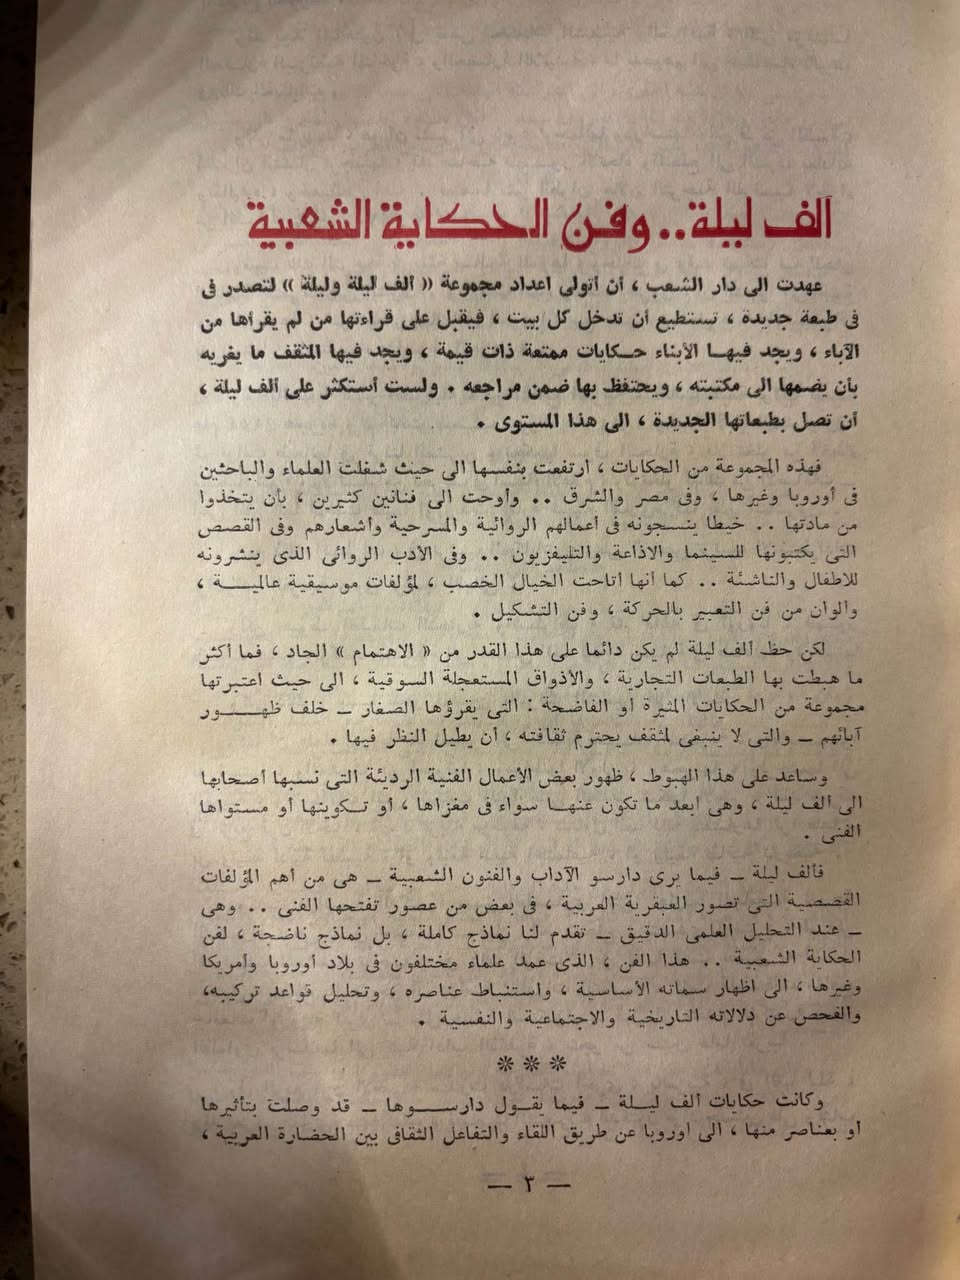 ألف ليلة.. وفن الحكاية الشعبية
عهدت الى دار الشعب ، أن أتولى اعداد مجموعة « ألف ليلة وليلة » لتصدر فى
فى طبعة جديدة ، تستطيع أن تدخل كل بيت ، فيقبل على قراءتها من لم يقرأها من
الآباء ، ويجد فيهـا الأبناء حـكايات ممتعة ذات قيمة ، ويجد فيها المثقف ما يغريه
بأن يضمها الى مكتبته ، ويحتفظ بها ضمن مراجعه . ولست أستكثر على ألف ليلة ،
أن تصل بطبعاتها الجديدة ، الى هذا المستوى .
فهذه المجموعة من الحكايات ، ارتفعت بنفسها الى حيث شغلت العلماء والباحثين
فى أوروبا وغيرها ، وفى مصر والشرق .. وأوحت الى فنانين كثيرين ، بأن يتخذوا
من مادتها .. خيطا ينسجونه فى أعمالهم الروائية والمسرحية وأشعارهم وفى القصص
التى يكتبونها للسينما والاذاعة والتليفزيون .. وفى الأدب الروائى الذى ينشرونه
للاطفال والناشئة .. كما أنها أتاحت الخيال الخصب ، لمؤلفات موسيقية عالميـــة ،
والوان من فن التعبير بالحركة ، وفن التشكيل .
لكن حظ ألف ليلة لم يكن دائما على هذا القدر من « الاهتمام » الجاد ، فما أكثر
ما هبطت بها الطبعات التجارية ، والأذواق المستعجلة السوقية ، الى حيث اعتبرتها
مجموعة من الحكايات المثيرة أو الفاضحة : التى يقرؤها الصغار ــ خلف ظهـــور
آبائهم ــ والتى لا ينبغى لمثقف يحترم ثقافته ، أن يطيل النظر فيها .
وساعد على هذا الهبوط ، ظهور بعض الأعمال الفنية الرديئة التى نسبها أصحابها
الى ألف ليلة ، وهى أبعد ما تكون عنهـا سواء فى مغزاها ، أو تـكوينها أو مستواها
الفنى .
فألف ليلة ــ فيما يرى دارسو الآداب والفنون الشعبية ــ هى من أهم المؤلفات
القصصية التى تصور العبقرية العربية ، فى بعض من عصور تفتحها الفنى .. وهى
ــ عند التحليل العلمى الدقيق ــ تقدم لنا نماذج كاملة ، بل نماذج ناضجة ، لفن
الحكاية الشعبية .. هذا الفن ، الذى عمد علماء مختلفون فى بلاد أوروبا وأمريكا
وغيرها ، الى اظهار سماته الأساسية ، واستنباط عناصره ، وتحليل قواعد تركيبه،
والفحص عن دلالاته التاريخية والاجتماعية والنفسية .
* * *
وكانت حكايات ألف ليـلة ــ فيما يقول دارسـوها ــ قد وصلت بتأثيرها
أو بعناصر منها ، الى أوروبا عن طريق اللقاء والتفاعل الثقافى بين الحضارة العربية ،
— ٣ —